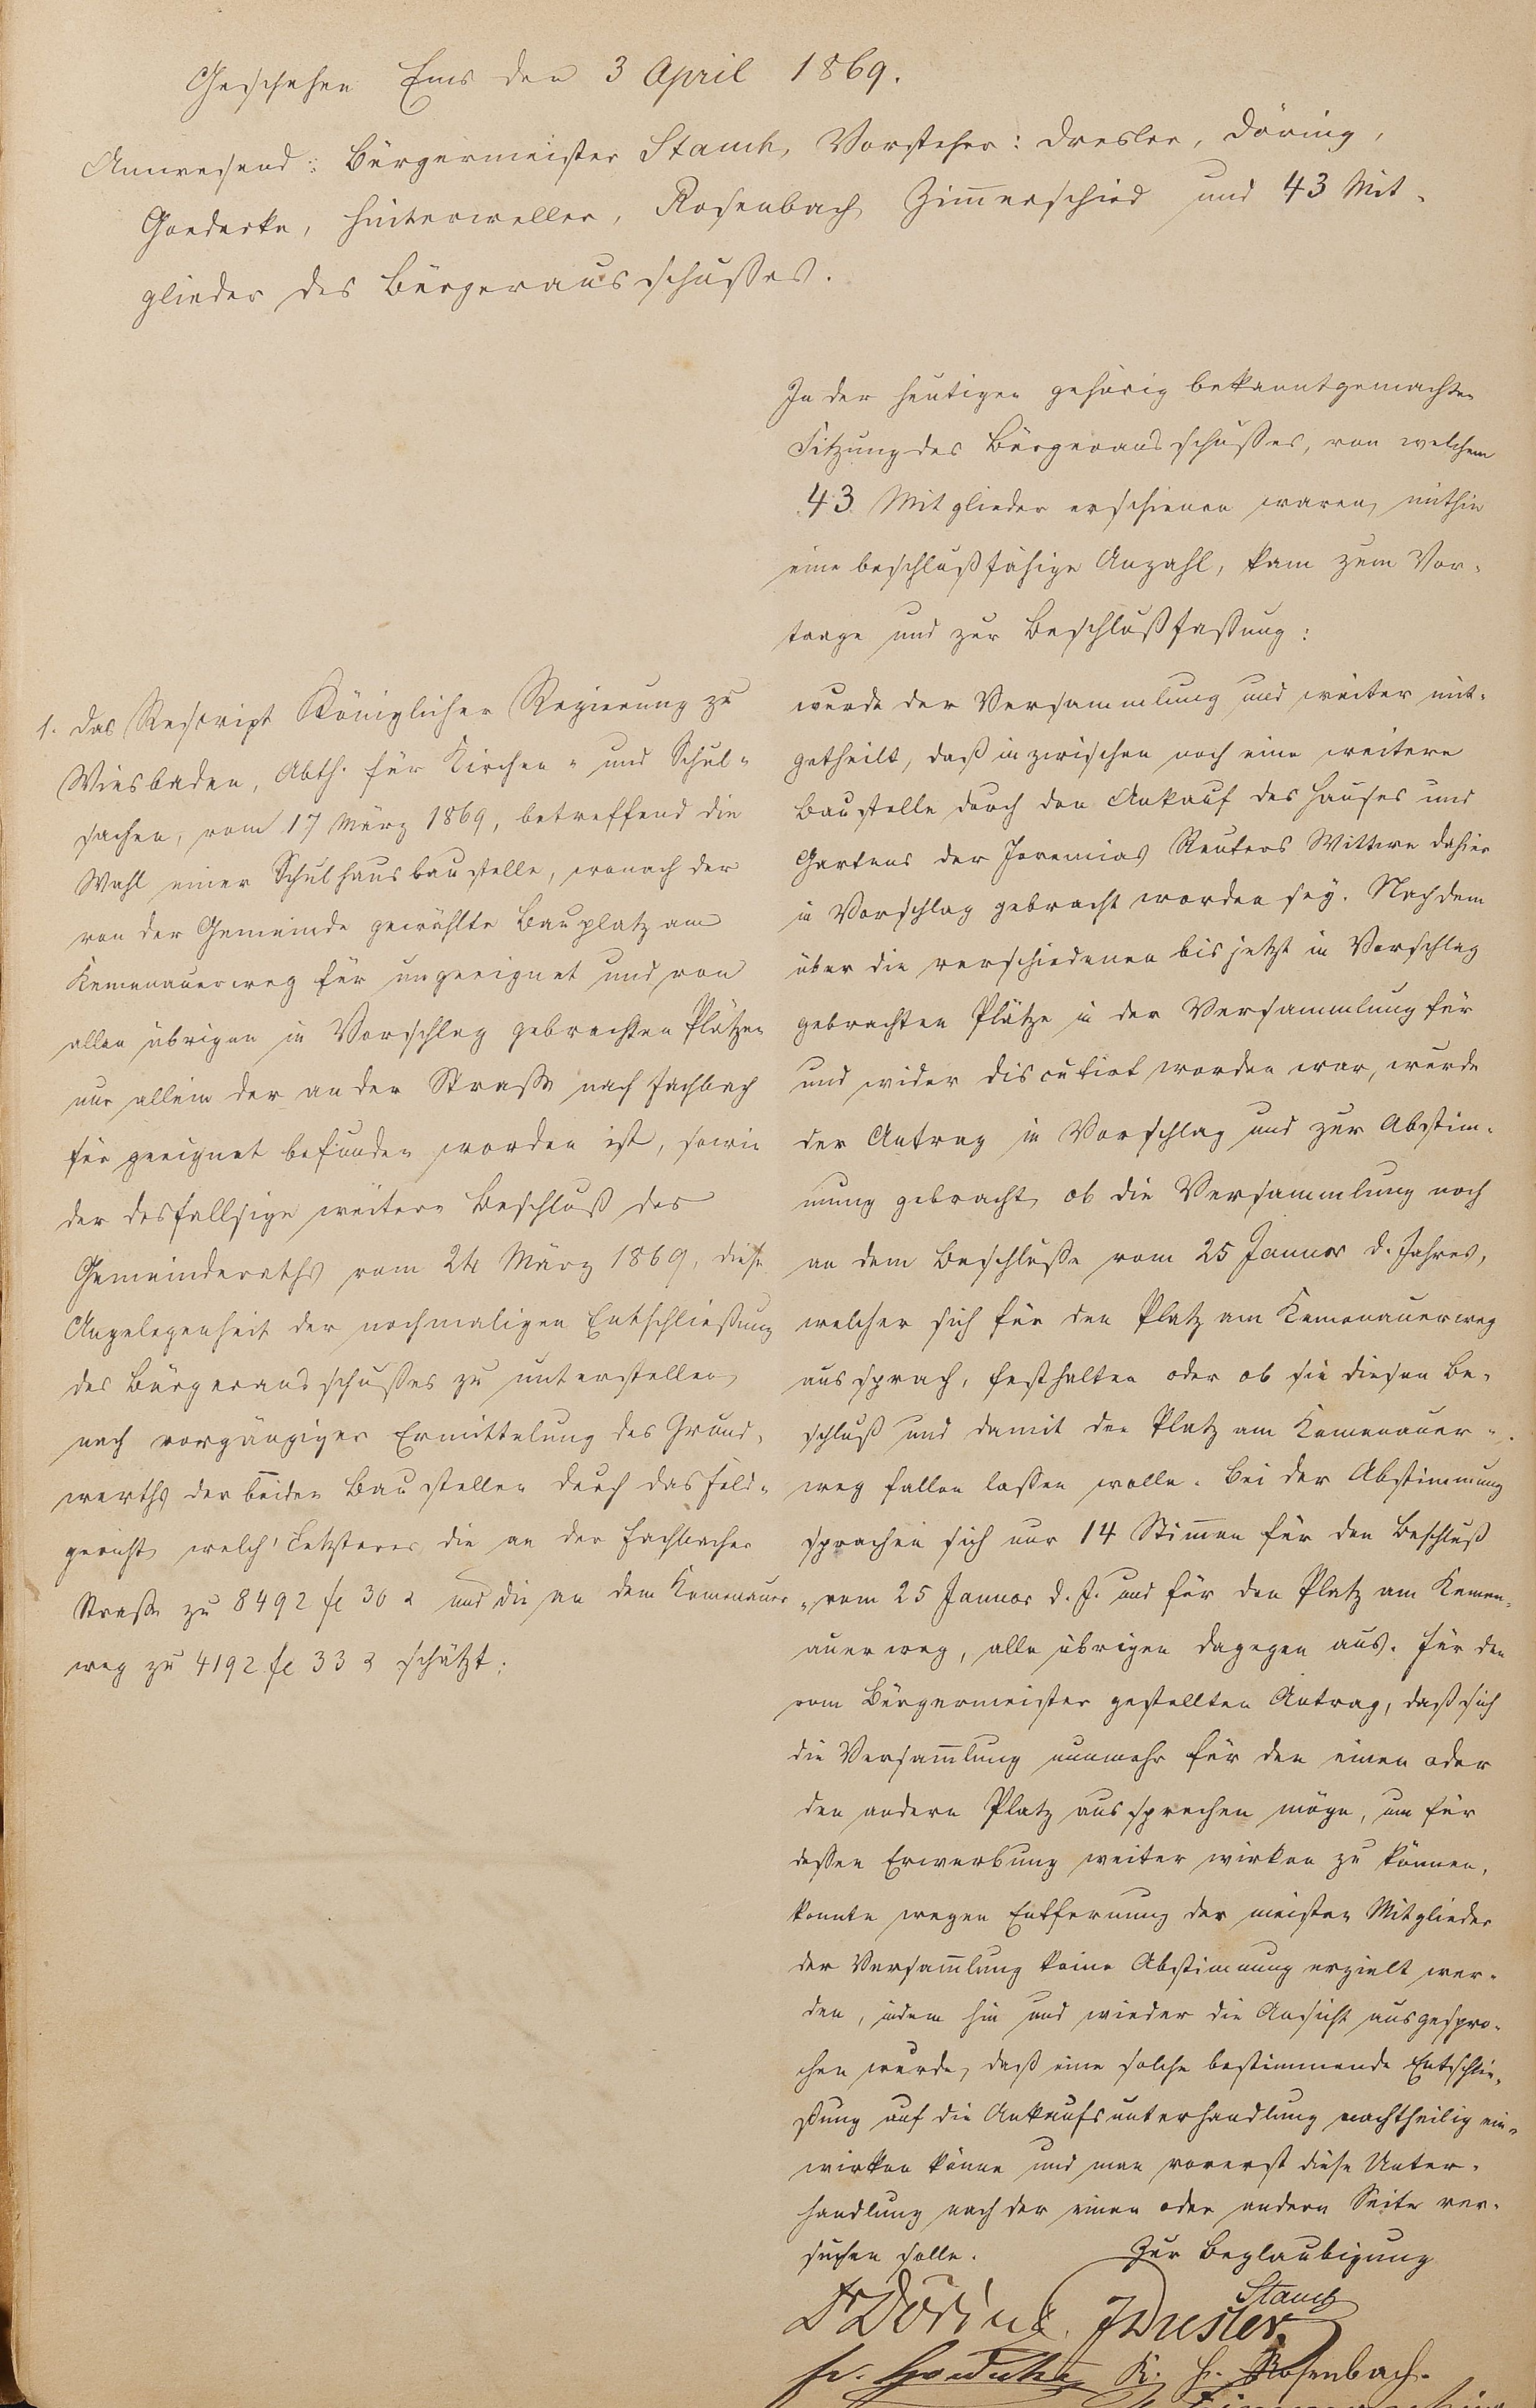 Geschehen Ems den 3 April 1869.
Anwesend: Bürgermeister Stauch, Vorsteher: Dresler, Döring,
Goedecke, Hinterweller, Rosenbach, Zim̄erschied und 43 Mit-
glieder des Bürgerausschußes.
In der heutigen gehörig bekanntgemachten
Sitzung des Bürgerausschußes, von welchem
43 Mitglieder erschienen waren, mithin
eine beschlußfähige Anzahl, kam zum Vor-
trage und zur Beschlußfaßung:
1. Das Rescript Königlicher Regierung zu
Wiesbaden, Abth. für Kirchen- und Schul-
sachen, vom 17 März 1869, betreffend die
Wahl einer Schulhausbaustelle, wonach der
von der Gemeinde gewählte Bauplatz am
Kemenauerweg für ungeeignet und von
allen übrigen in Vorschlag gebrachten Plätzen
nur allein der an der Straße nach Fachbach
für geeignet befunden worden ist, sowie
der desfallsige weitere Beschluß des
Gemeinderaths vom 24 März 1869, diese
Angelegenheit der nochmaligen Entschließung
des Bürgerausschußes zu unterstellen,
nach vorgängiger Ermittelung des Grund-
werths der beiden Baustellen durch das Feld-
gericht, welch' Letzteres die an der Fachbacher
Straße zu 8492 fl 30 x und die an dem Kemenauer-
weg zu 4192 fl 33 x schätzt;
wurde der Versammlung und weiter mit-
getheilt, daß inzwischen noch eine weitere
Baustelle durch den Ankauf des Hauses und
Gartens der Jeremias Reuters Wittwe dahier
in Vorschlag gebracht worden sey. Nachdem
über die verschiedenen bis jetzt in Vorschlag
gebrachten Plätze in der Versammlung für
und wider discutirt worden war, wurde
der Antrag in Vorschlag und zur Abstim-
mung gebracht, ob die Versammlung noch
an dem Beschluße vom 25 Januar d. Jahres,
welcher sich für den Platz am Kemenauerweg
aussprach, festhalten oder ob sie diesen Be-
schluß und damit den Platz am Kemenauer-
weg fallen laßen wolle. Bei der Abstimmung
sprachen sich nur 14 Stim̄en für den Beschluß
vom 25 Januar d. J. und für den Platz am Kemen-
auerweg, alle übrigen dagegen aus. Für den
vom Bürgermeister gestellten Antrag, daß sich
die Versam̄lung nunmehr für den einen oder
den andern Platz aussprechen möge, um für
deßen Erwerbung weiter wirken zu können,
konnte wegen Entfernung der meisten Mitglieder
der Versam̄lung keine Abstimmung erzielt wer-
den, indem hin und wieder die Ansicht ausgespro-
chen wurde, daß eine solche bestimmende Entschlie-
ßung auf die Ankaufsunterhandlung nachtheilig ein-
wirken könne und man vorerst diese Unter-
handlung nach der einen oder andern Seite ver-
suchen solle.
Zur Beglaubigung
Stauch
Dr Döring. J Dresler.
Fr. Goedecke K. H. Rosenbach.